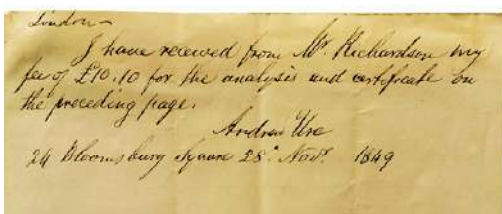 London —
I have received from Mr. Richardson my
fee of £10.10 for the analysis and certificate on
the preceding page.
Andrew Ure
24 Bloomsbury Square 28. Novr. 1849